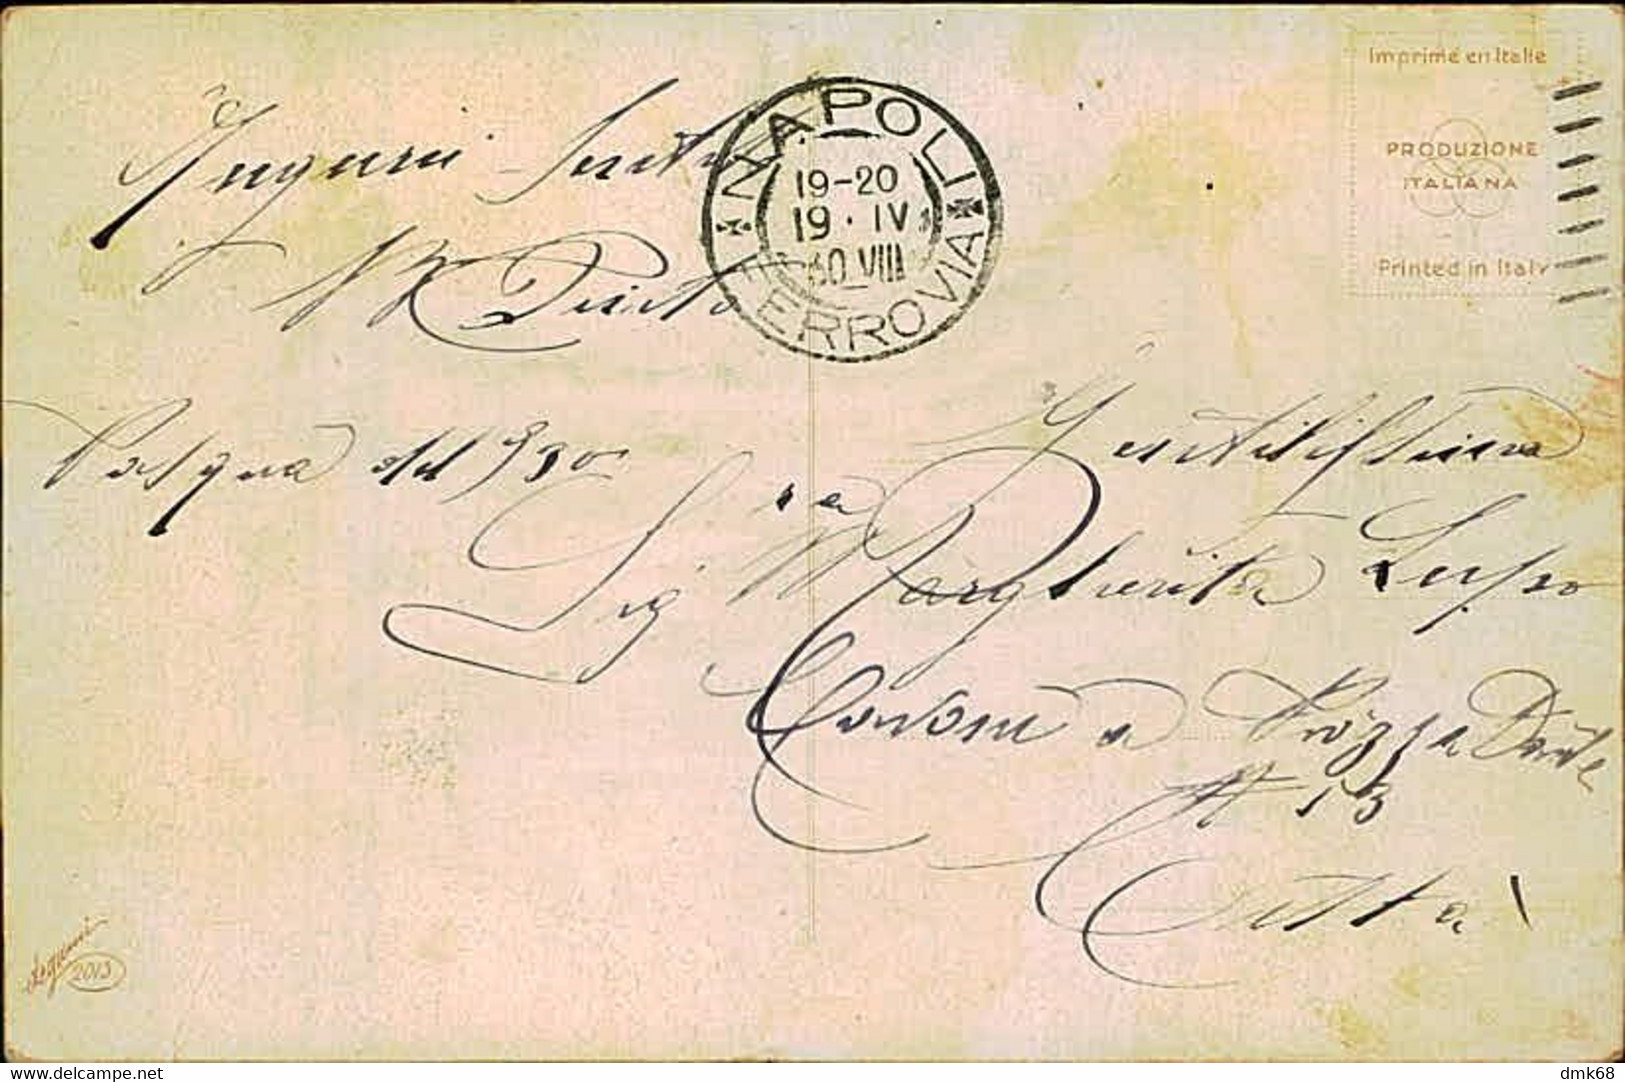 Imprimé en Italie
PRODUZIONE
ITALIANA
Printed in Italy
NAPOLI
19-20
19 · IV
30 VIII
FERROVIA
Auguri
Pasqua del 930
Gentilissima
Sig.ra Margherita Lupo
a Piazza Dante
N 13
Città
2013
delcampe.net
dmk68